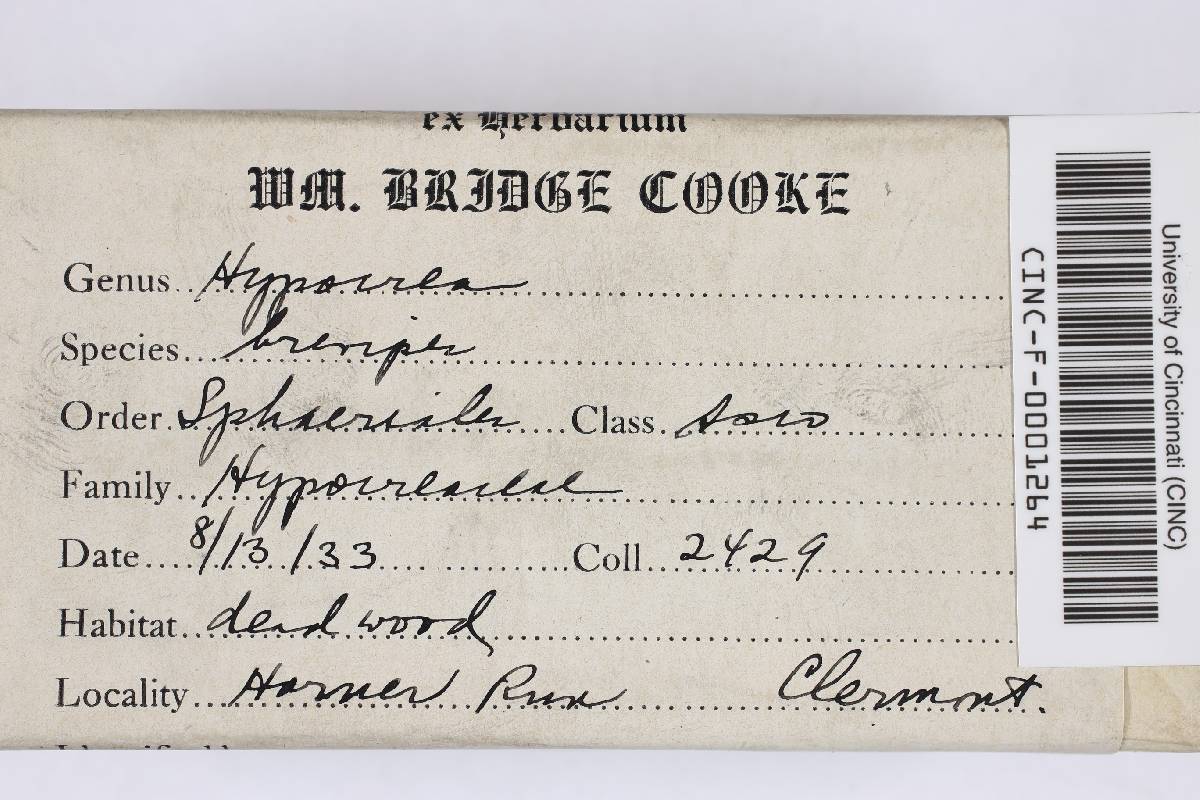 ex Herbarium
WM. BRIDGE COOKE
Genus Hypocrea
Species brevipes
Order Sphaeriales Class Asco
Family Hypocreaceae
Date 8/13/33 Coll 2429
Habitat dead wood
Locality Horner Run Clermont.
CINC-F-0001264
University of Cincinnati (CINC)